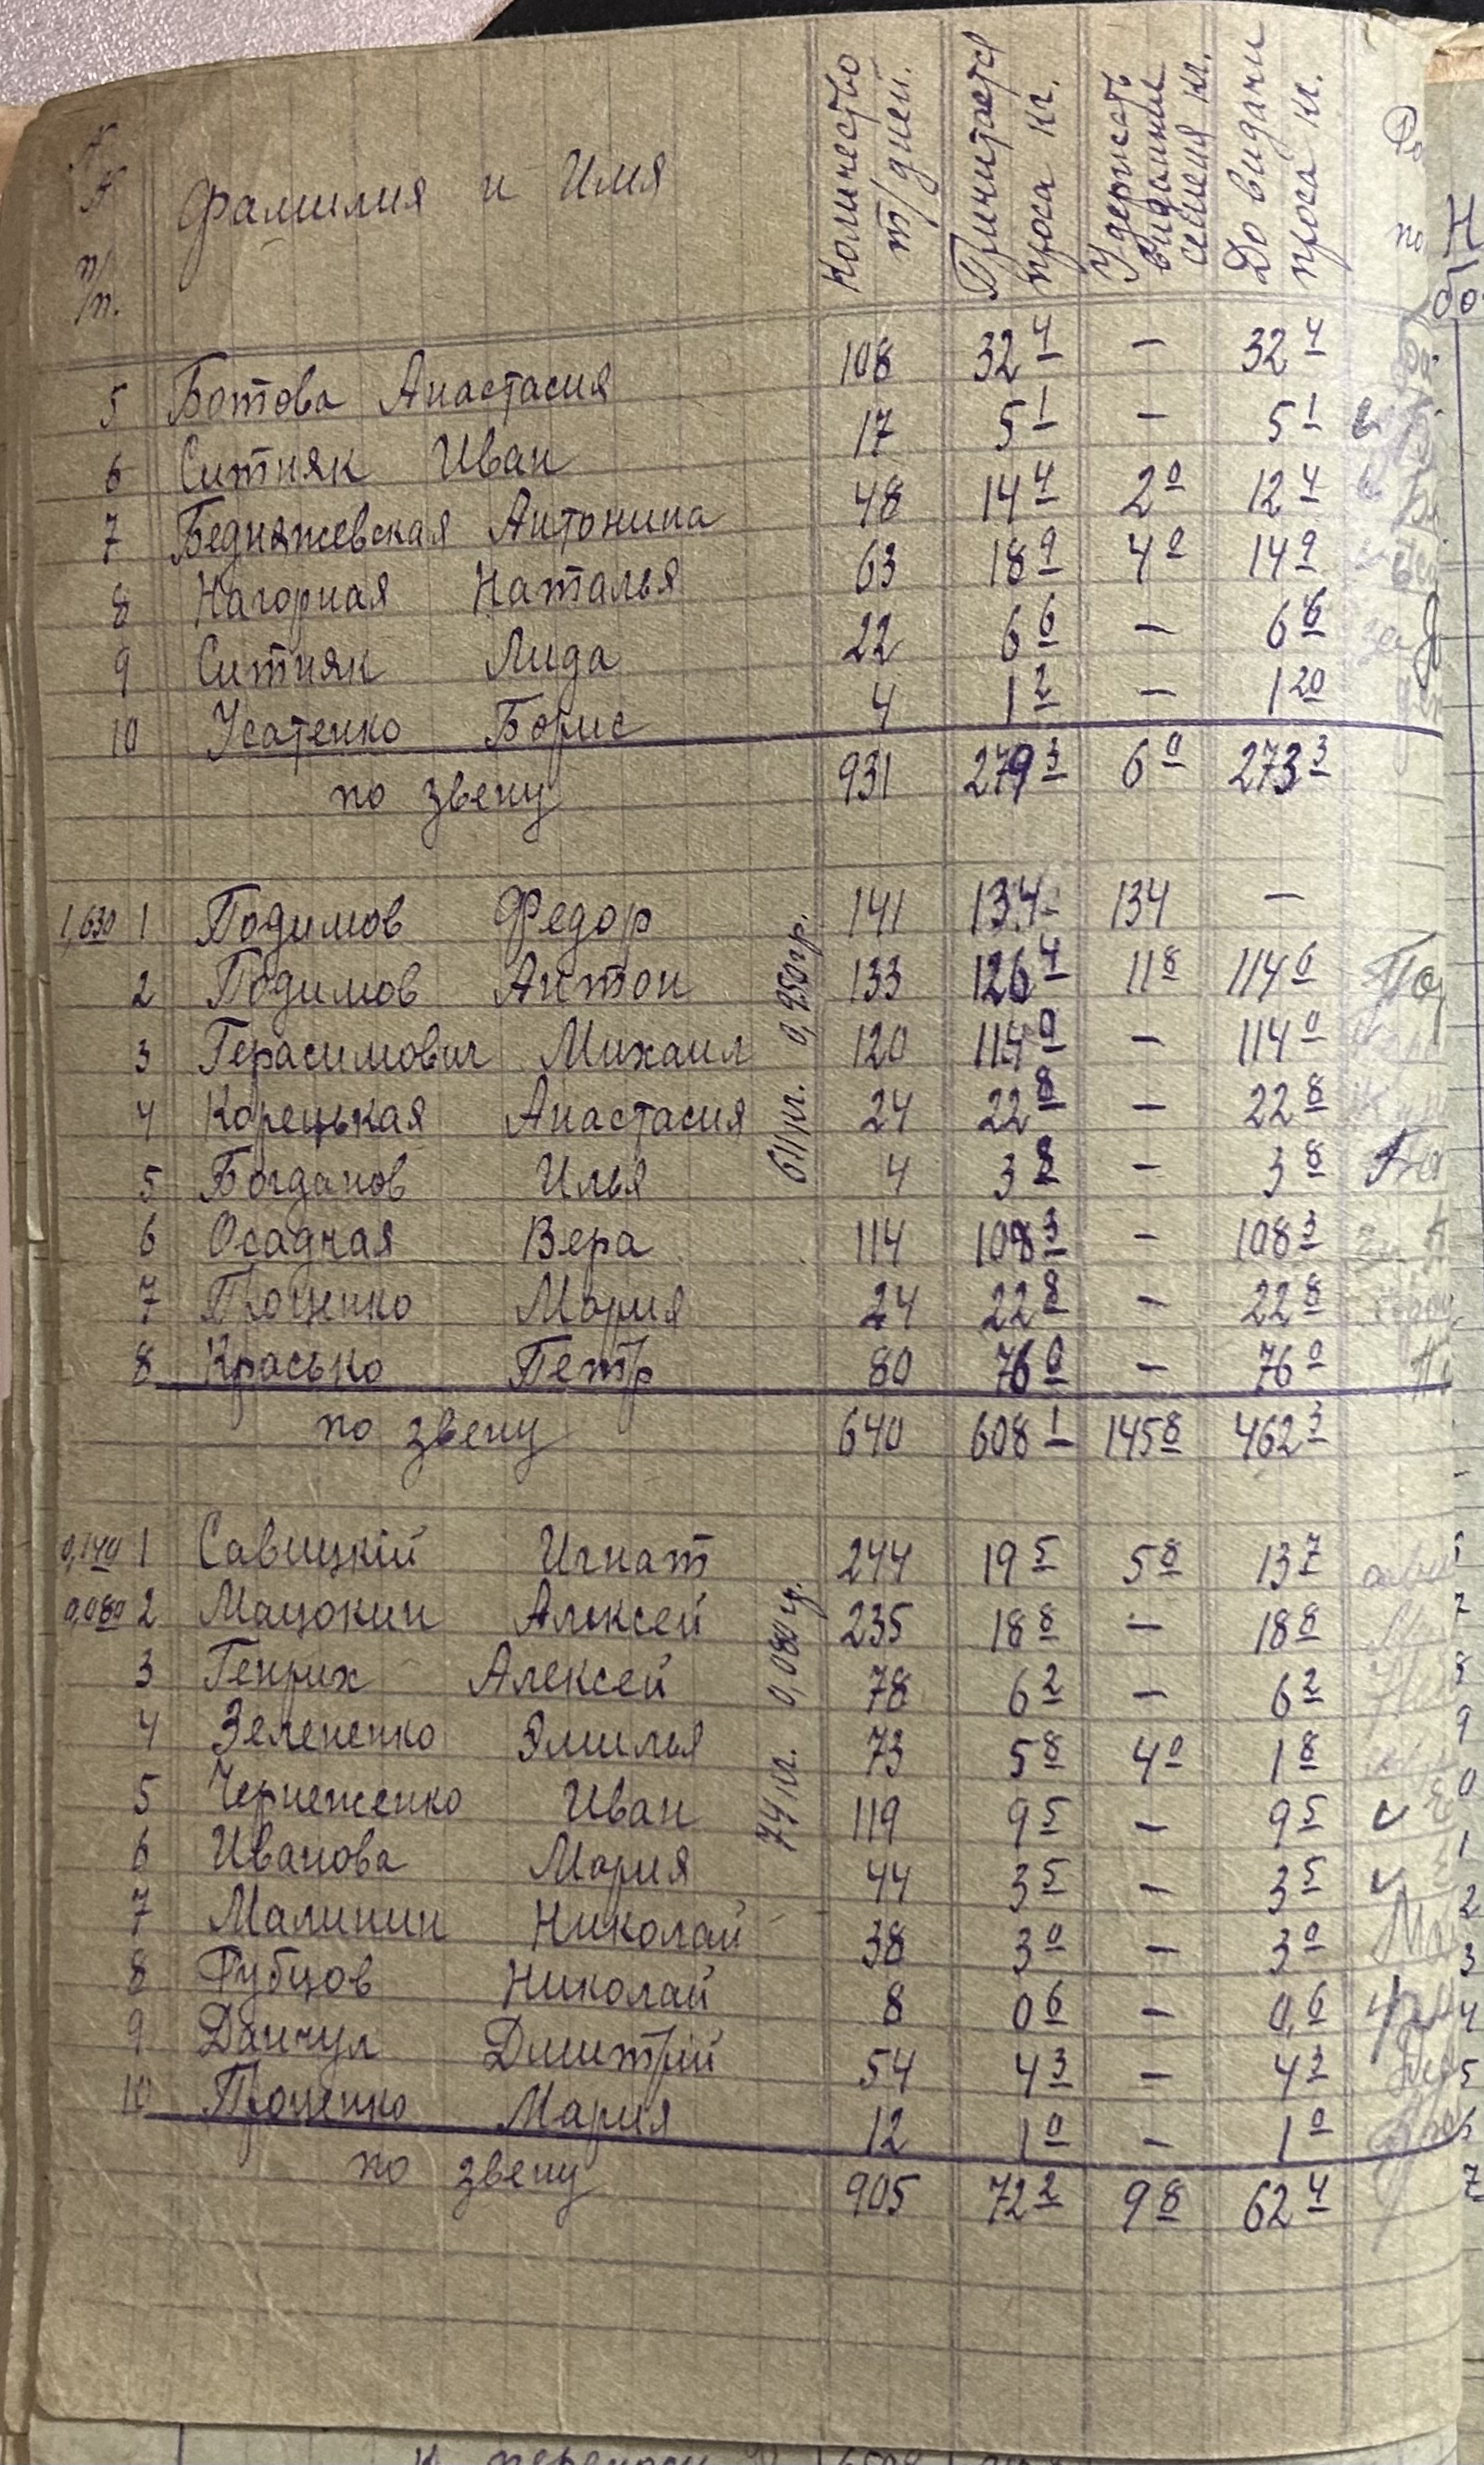 №№ п/п. Фамилия и Имя Количество т/дней. Причитается проса кг. Удержать видаиние семена кг. До видачи проса кг.
5 Ботова Анастасия 108 32 4 — 32 4
6 Ситняк Иван 17 5 1 — 5 1
7 Бедняжевская Антонина 48 14 4 2 0 12 4
8 Нагорная Наталья 63 18 9 4 0 14 9
9 Ситняк Лида 22 6 6 — 6 6
10 Усатенко Борис 4 1 2 — 1 20
по звену 931 279 3 6 0 273 3
1,630 1 Подимов Федор 141 134 134 —
2 Подимов Антон 133 126 4 11 8 114 6
3 Герасимович Михаил 120 114 0 — 114 0
4 Корецькая Анастасия 24 22 8 — 22 8
5 Богданов Илья 4 3 8 — 3 8
6 Осадчая Вера 114 108 3 — 108 3
7 Проценко Мария 24 22 8 — 22 8
8 Красько Петр 80 76 0 — 76 0
611 кг. 0,950 гр.
по звену 640 608 1 145 8 462 3
0,140 1 Савицкій Игнат 244 19 5 5 8 13 7
0,080 2 Мацокин Алексей 235 18 8 — 18 8
3 Генрих Алексей 78 6 2 — 6 2
4 Зелененко Эмилья 73 5 8 4 0 1 8
5 Чернеженко Иван 119 9 5 — 9 5
6 Иванова Мария 44 3 5 — 3 5
7 Малинин Николай 38 3 0 — 3 0
8 Фубцов Николай 8 0 6 — 0,6
9 Данчул Дмитрій 54 4 3 — 4 3
10 Проценко Мария 12 1 0 — 1 0
74 кг. 0,080 гр.
по звену 905 72 2 9 8 62 4